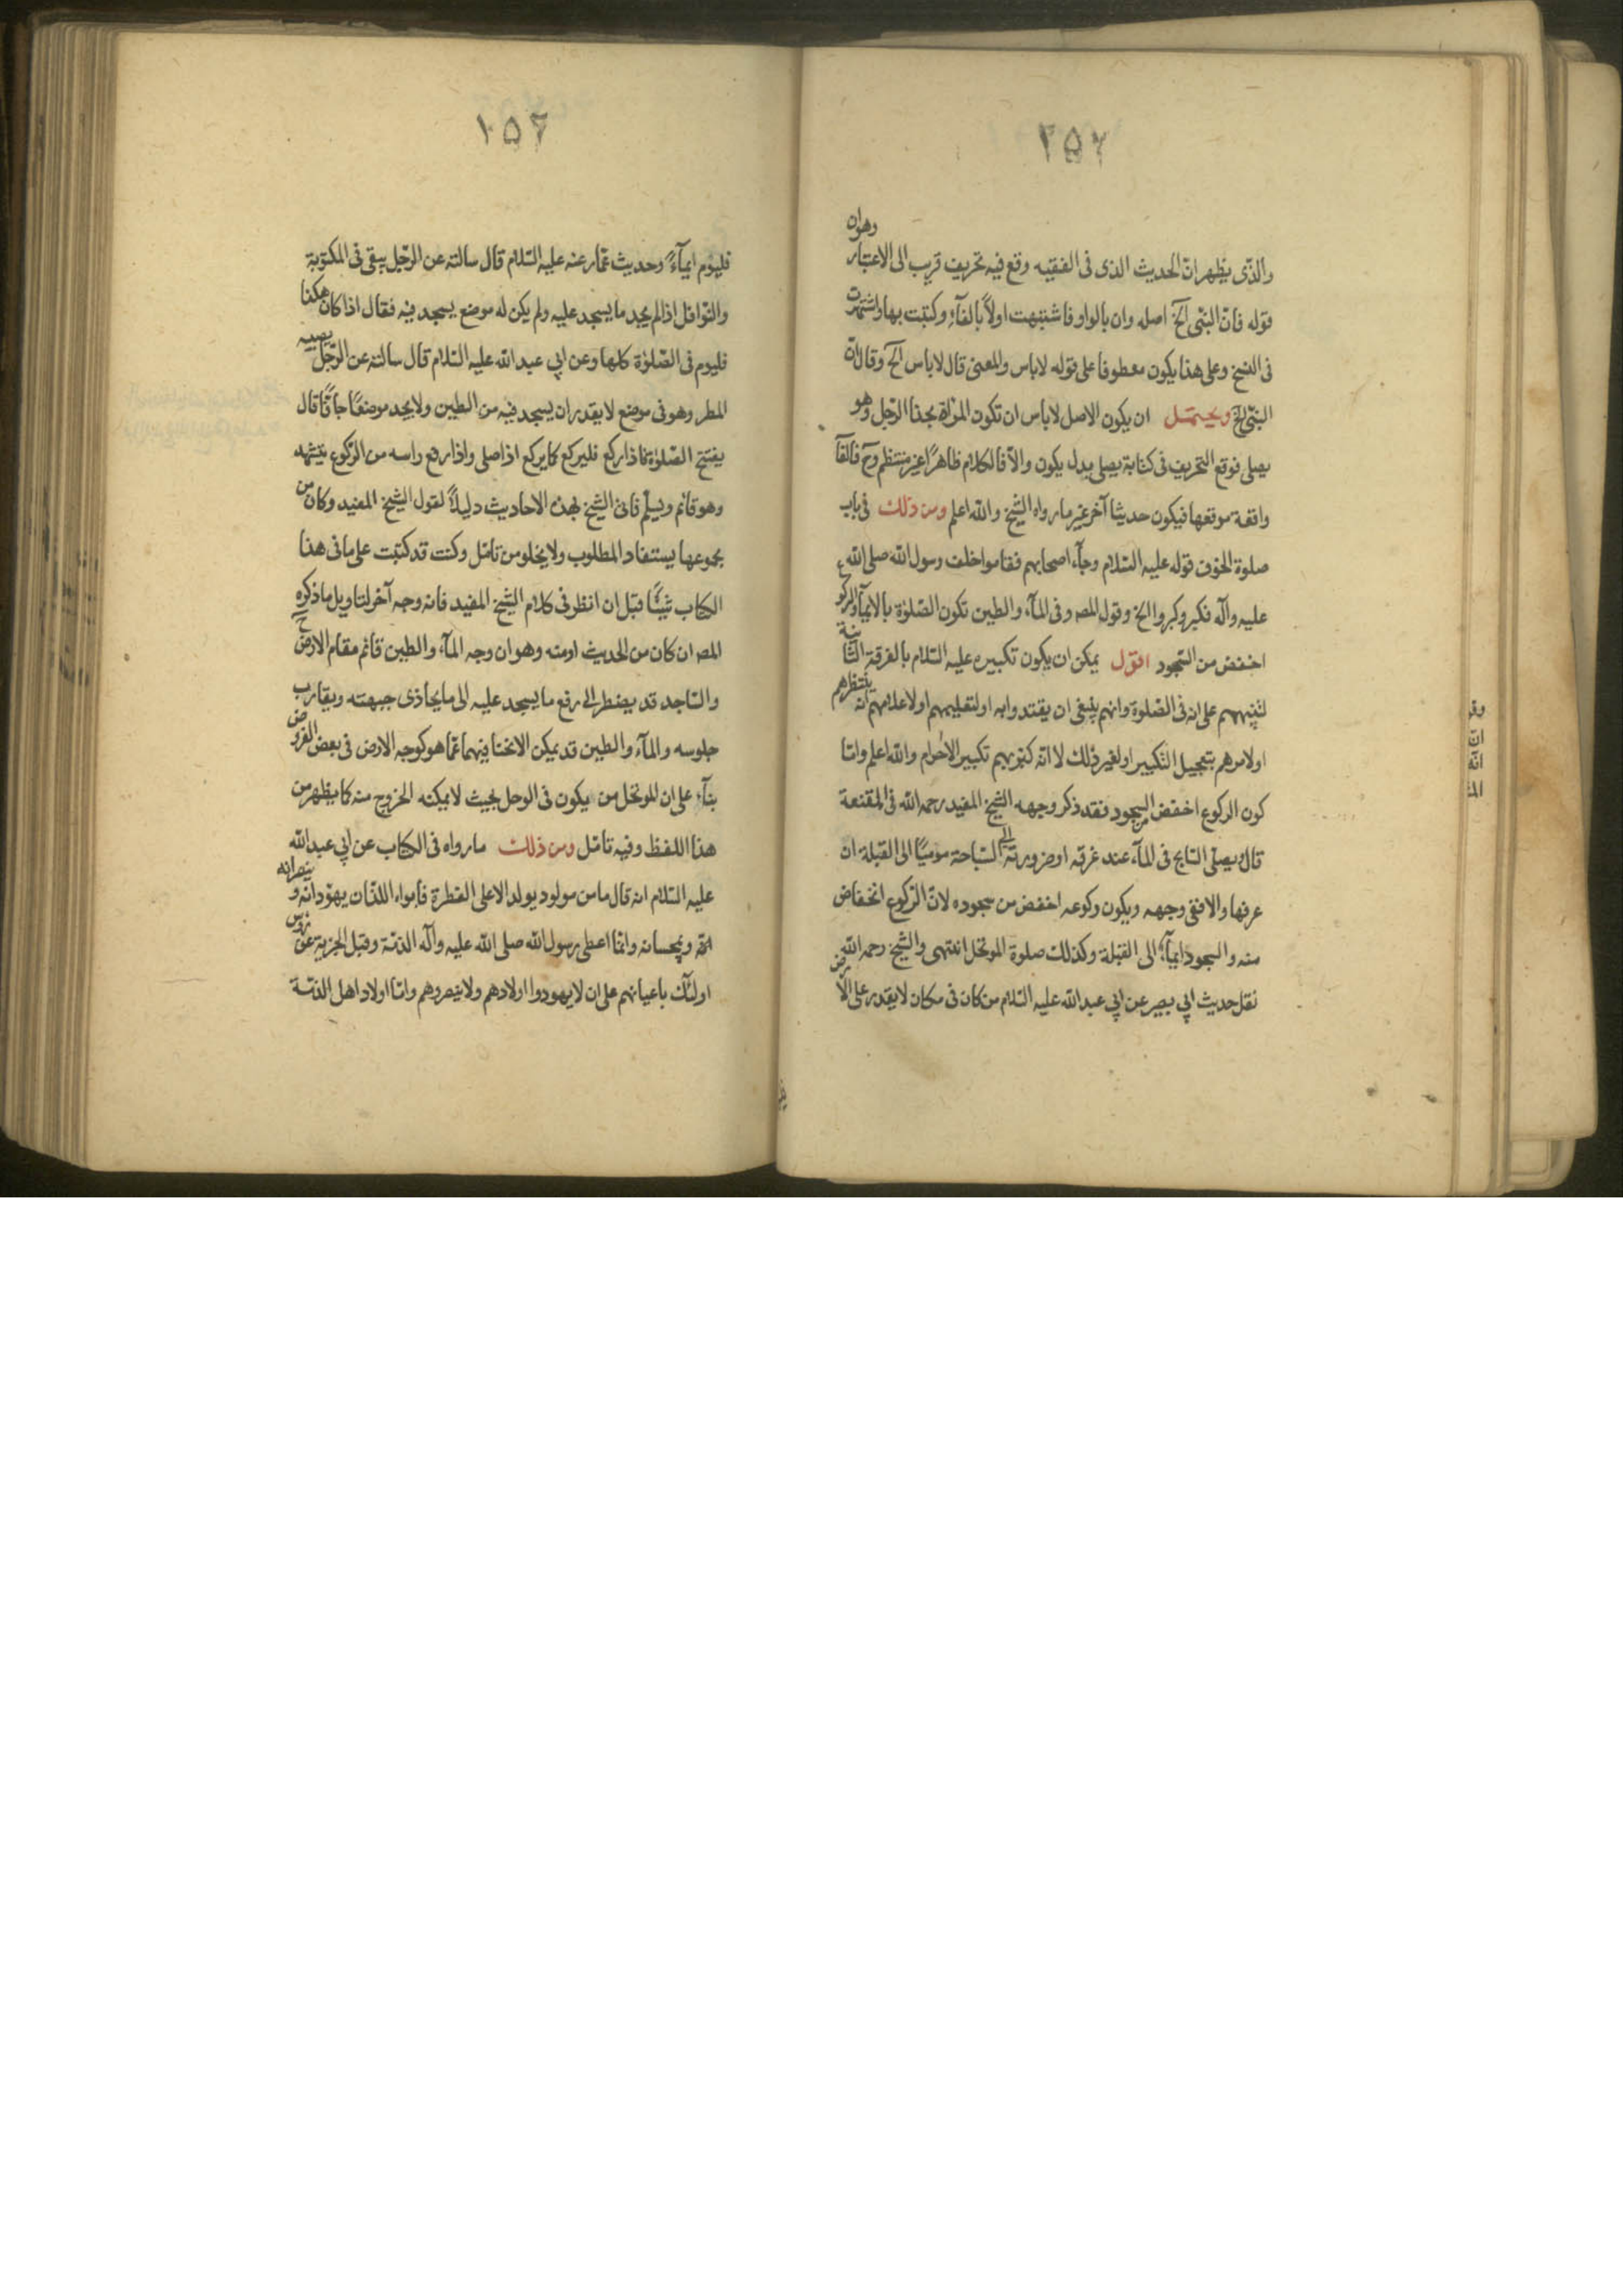 ٢٥٧
والذى يظهر ان الحديث الذى فى الفقيه وقع فيه تحريف قريب الى الاعتبار وهو ان
قوله فانّ النبى الخ اصله وان بالواو فاشتبهت اولاً بالفآء وكتبت بها واشتهرت
فى النسخ وعلى هذا يكون معطوفا على قوله لاباس والمعنى قال لاباس الخ وقال ان
النبى الخ ويحتمل ان يكون الاصل لاباس ان تكون المرأة بحذا الرجل وهو
يصلى فوقع التحريف فى كتابة يصلى بدل يكون والا فالكلام ظاهرًا غير منتظم وح فالفآ
واقعة موقعها فيكون حديثا آخر غير مارواه الشيخ والله اعلم ومن ذلك فى باب
صلوة الخوف قوله عليه السّلام وجآء اصحابهم فقاموا خلف رسول الله صلى الله
عليه وآله فكبر وكبروا الخ وقول المص وفى المآء والطين تكون الصّلوة بالايمآ والركوع
اخفض من السّجود اقول يمكن ان يكون تكبيره عليه السّلام بالفرقة الثانية
لتنبيههم على انه فى الصّلوة وانهم ينبغى ان يقتدوا به او لتعليمهم او لاعلامهم انه ينتظرهم
او لامرهم بتعجيل التكبير او لغير ذلك لا انّه كبّر بهم تكبير الاحرام والله اعلم وامّا
كون الركوع اخفض من السجود فقد ذكر وجهه الشيخ المفيد رحمه الله فى المقنعة
قال يصلّى السّابح فى المآء عند غرقه او ضرورته الى السّباحة موميًا الى القبلة ان
عرفها والا ففى وجهه ويكون ركوعه اخفض من سجوده لانّ الرّكوع انخفاض
منه والسجود ايمآء الى القبلة وكذلك صلوة الموتحل انتهى والشيخ رحمه الله
نقل حديث ابى بصير عن ابى عبد الله عليه السّلام من كان فى مكان لا يقدر على الارض
١٥٦
فليوم ايمآءً وحديث عمّار عنه عليه السّلام قال سالته عن الرّجل يبقى فى المكتوبة
والنّوافل اذا لم يجد ما يسجد عليه ولم يكن له موضع يسجد فيه فقال اذا كان هكذا
فليوم فى الصّلوة كلها وعن ابى عبد الله عليه السّلام قال سالته عن الرّجل يصيبه
المطر وهو فى موضع لا يقدر ان يسجد فيه من الطين ولا يجد موضعًا جافًّا قال
يفتتح الصّلوة فاذا ركع فليركع كما يركع اذا صلى واذا رفع راسه من الرّكوع فليؤم
وهو قائم ويسلّم فاتى الشيخ بهذه الاحاديث دليلاً لقول الشيخ المفيد وكان من
مجموعها يستفاد المطلوب ولا يخلو من تامّل وكنت قد كتبت على ما فى هذا
الكتاب شيئًا قبل ان انظر فى كلام الشيخ المفيد فانه وجه آخر لتاويل ما ذكره
المص ان كان من الحديث او منه وهو ان وجه المآء والطين قائم مقام الارض ح
والسّاجد قد يضطر الى رفع ما يسجد عليه الى ما يحاذى جبهته ويقارب
جلوسه والمآء والطين قد يمكن الانحنا فيهما عمّا هو كوجه الارض فى بعض الفروض
بنآء على ان للموتحل من يكون فى الوحل بحيث لا يمكنه الخروج منه كما يظهر من
هذا اللفظ وفيه تامّل ومن ذلك مارواه فى الكتاب عن ابى عبد الله
عليه السّلام انه قال ما من مولود يولد الا على الفطرة فابواه اللذان يهوّدانه وينصرانه
ويمجسانه وانما اعطى رسول الله صلى الله عليه وآله الذمّة وقبل الجزية عن
اولئك باعيانهم على ان لا يهودوا اولادهم ولا ينصروهم وامّا اولاد اهل الذمّة